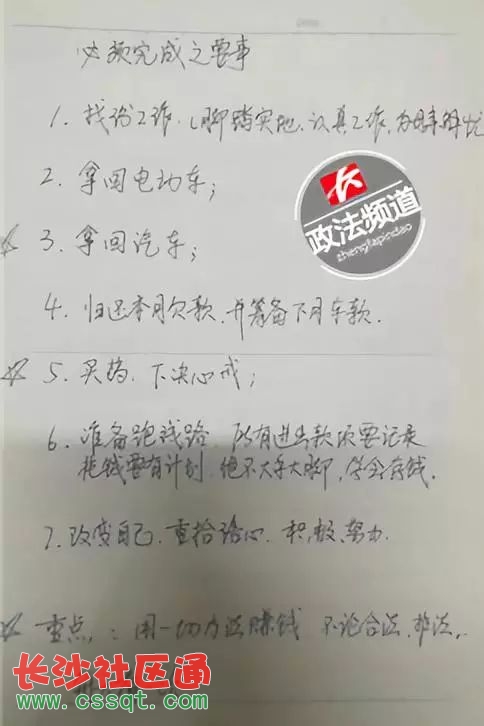 必须完成之要事
1. 找份工作，脚踏实地，认真工作，为母亲解忧
2. 拿回电动车；
政法频道
zhengfapindao
☆ 3. 拿回汽车；
4. 归还本月欠款，并筹备下月车款．
☆ 5. 买药，下决心戒；
6. 准备跑线路 所有进出款项要记录
花钱要有计划，绝不大手大脚，学会存钱．
7. 改变自己，重拾信心，积极、努力．
☆ 重点：用一切办法赚钱 不论合法、非法．
长沙社区通
www.cssqt.com